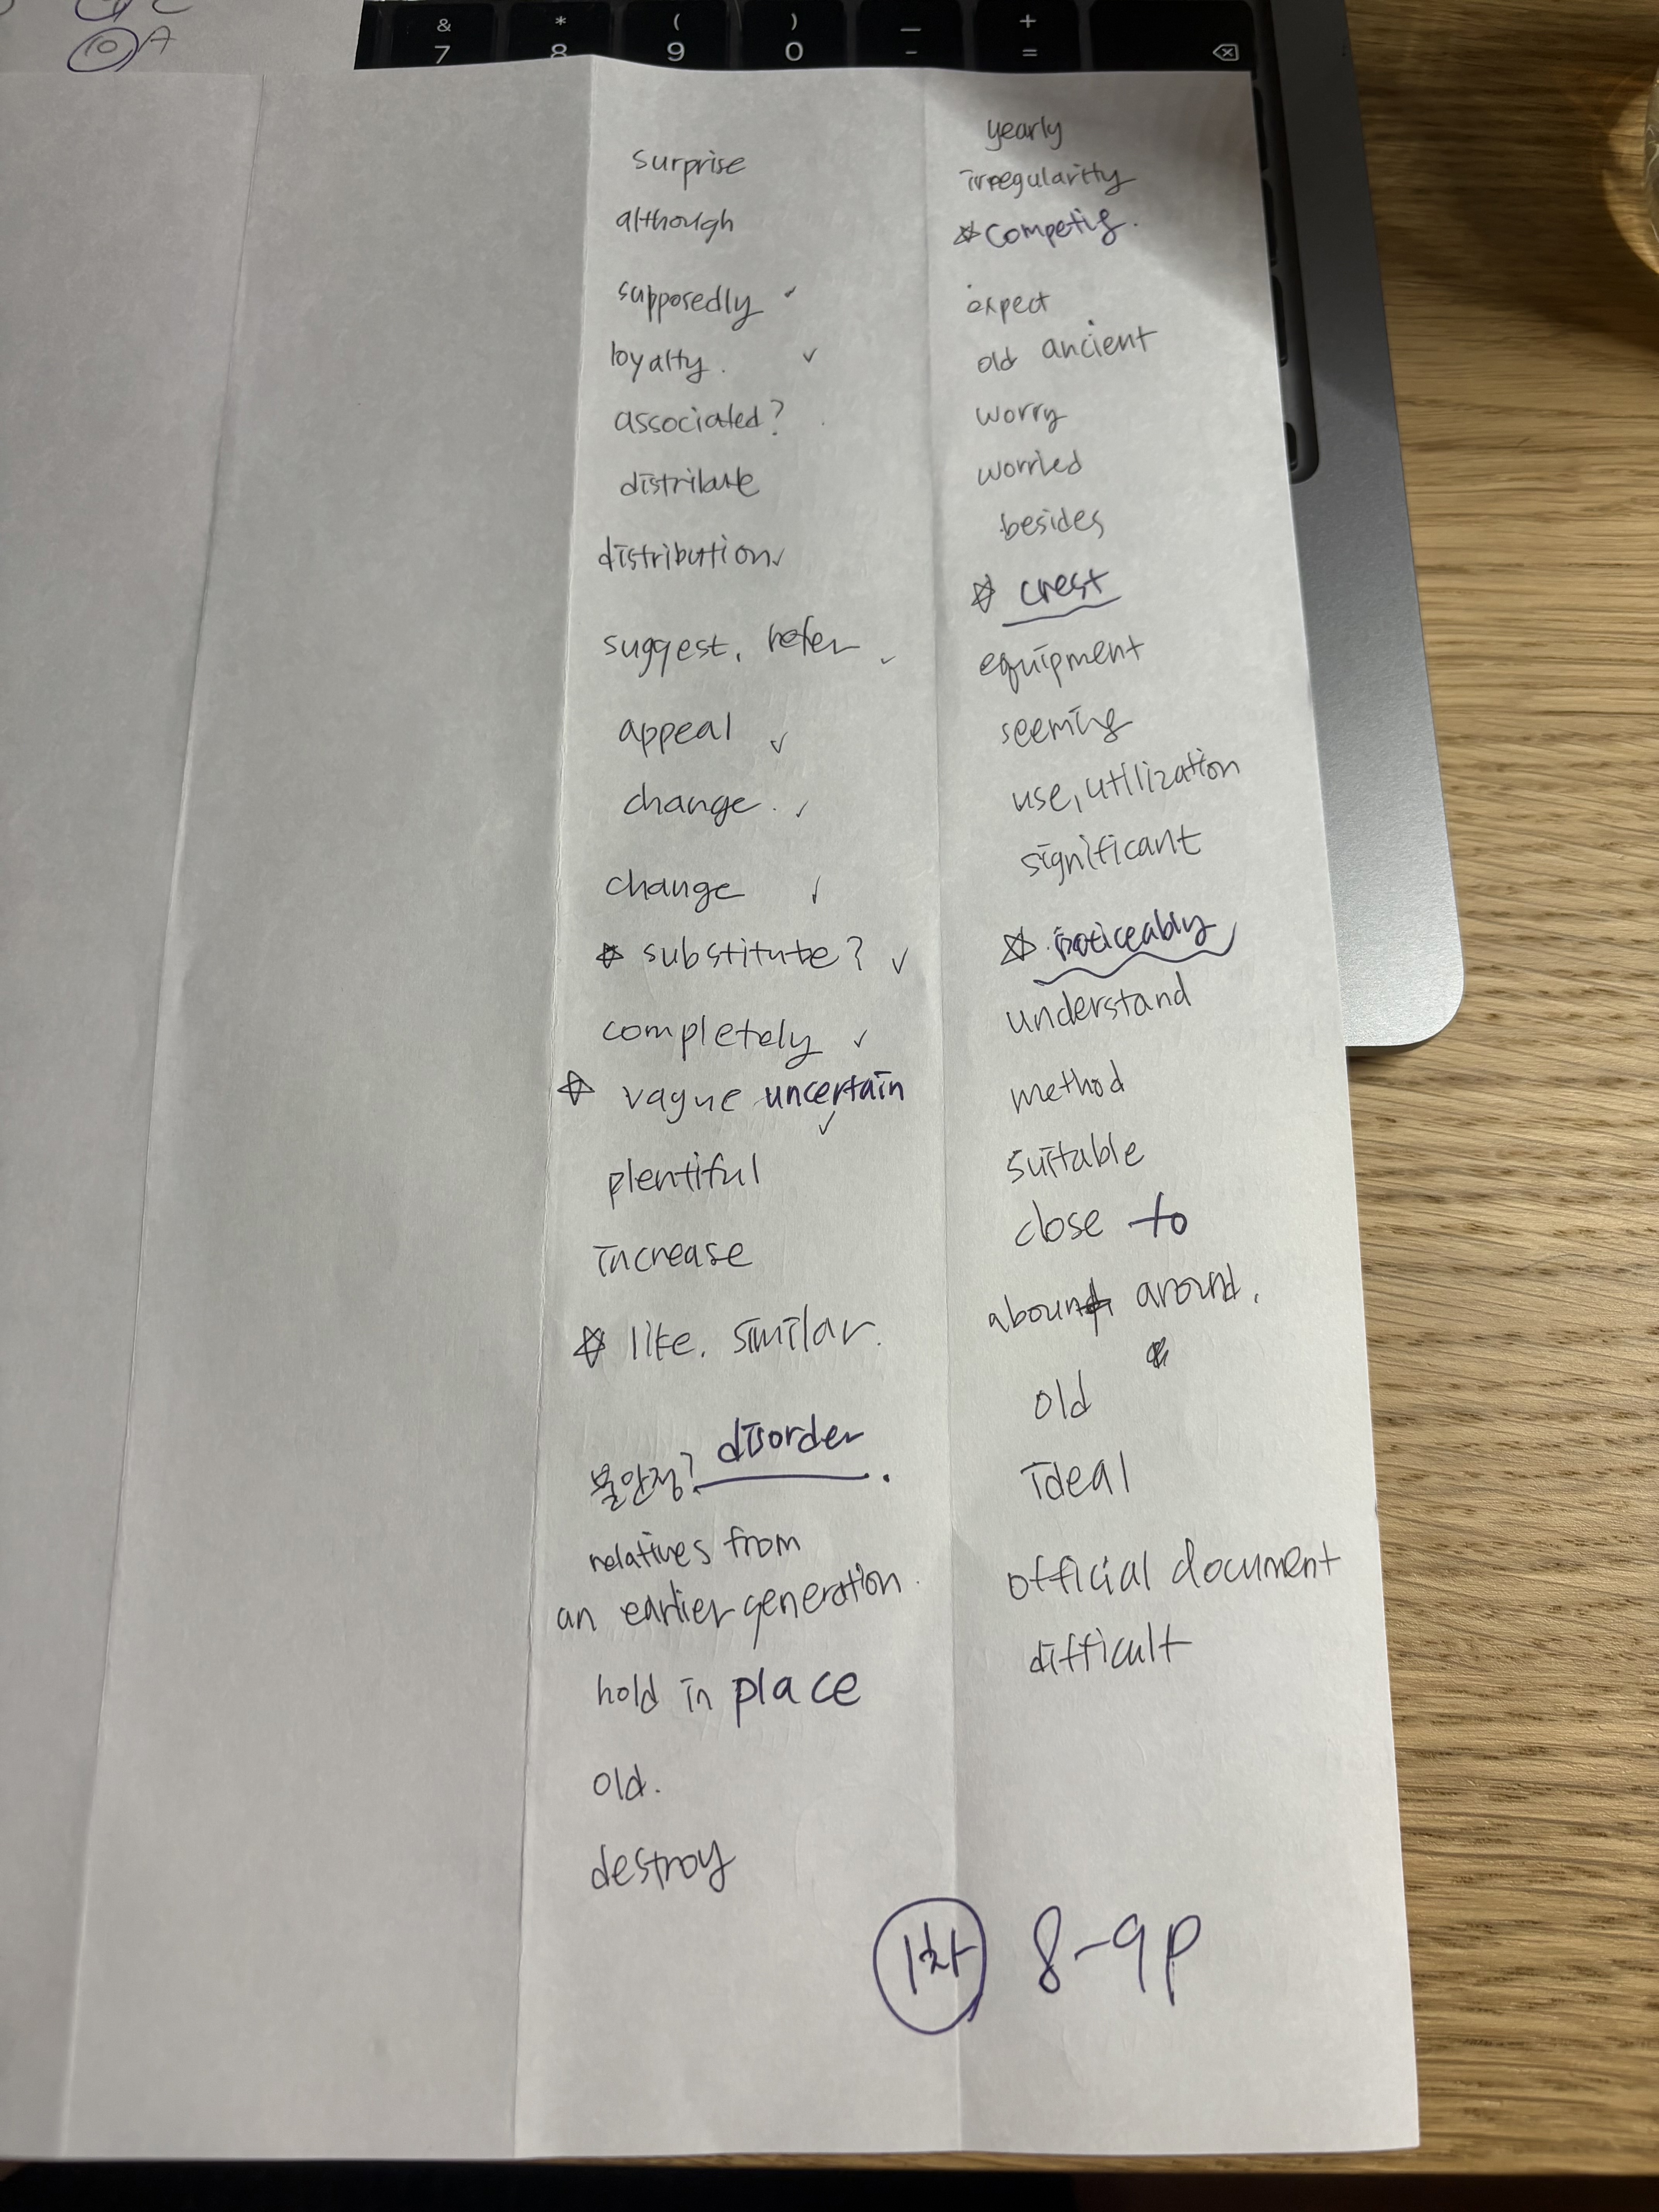 & * ( ) — +
7 8 9 0 - =
10 A
surprise
although
supposedly ✓
loyalty. ✓
associated?
distribute
distribution ✓
suggest, refer ✓
appeal ✓
change. ✓
change ✓
☆ substitute? ✓
completely ✓
☆ vague uncertain
✓
plentiful
increase
☆ like, similar.
불안정? disorder.
relatives from
an earlier generation.
hold in place
old.
destroy
yearly
irregularity
☆ competig.
expect
old ancient
worry
worried
besides
☆ crest
equipment
seeming
use, utilization
significant
☆ noticeably
understand
method
suitable
close to
around,
old
ideal
official document
difficult
1차 8-9p